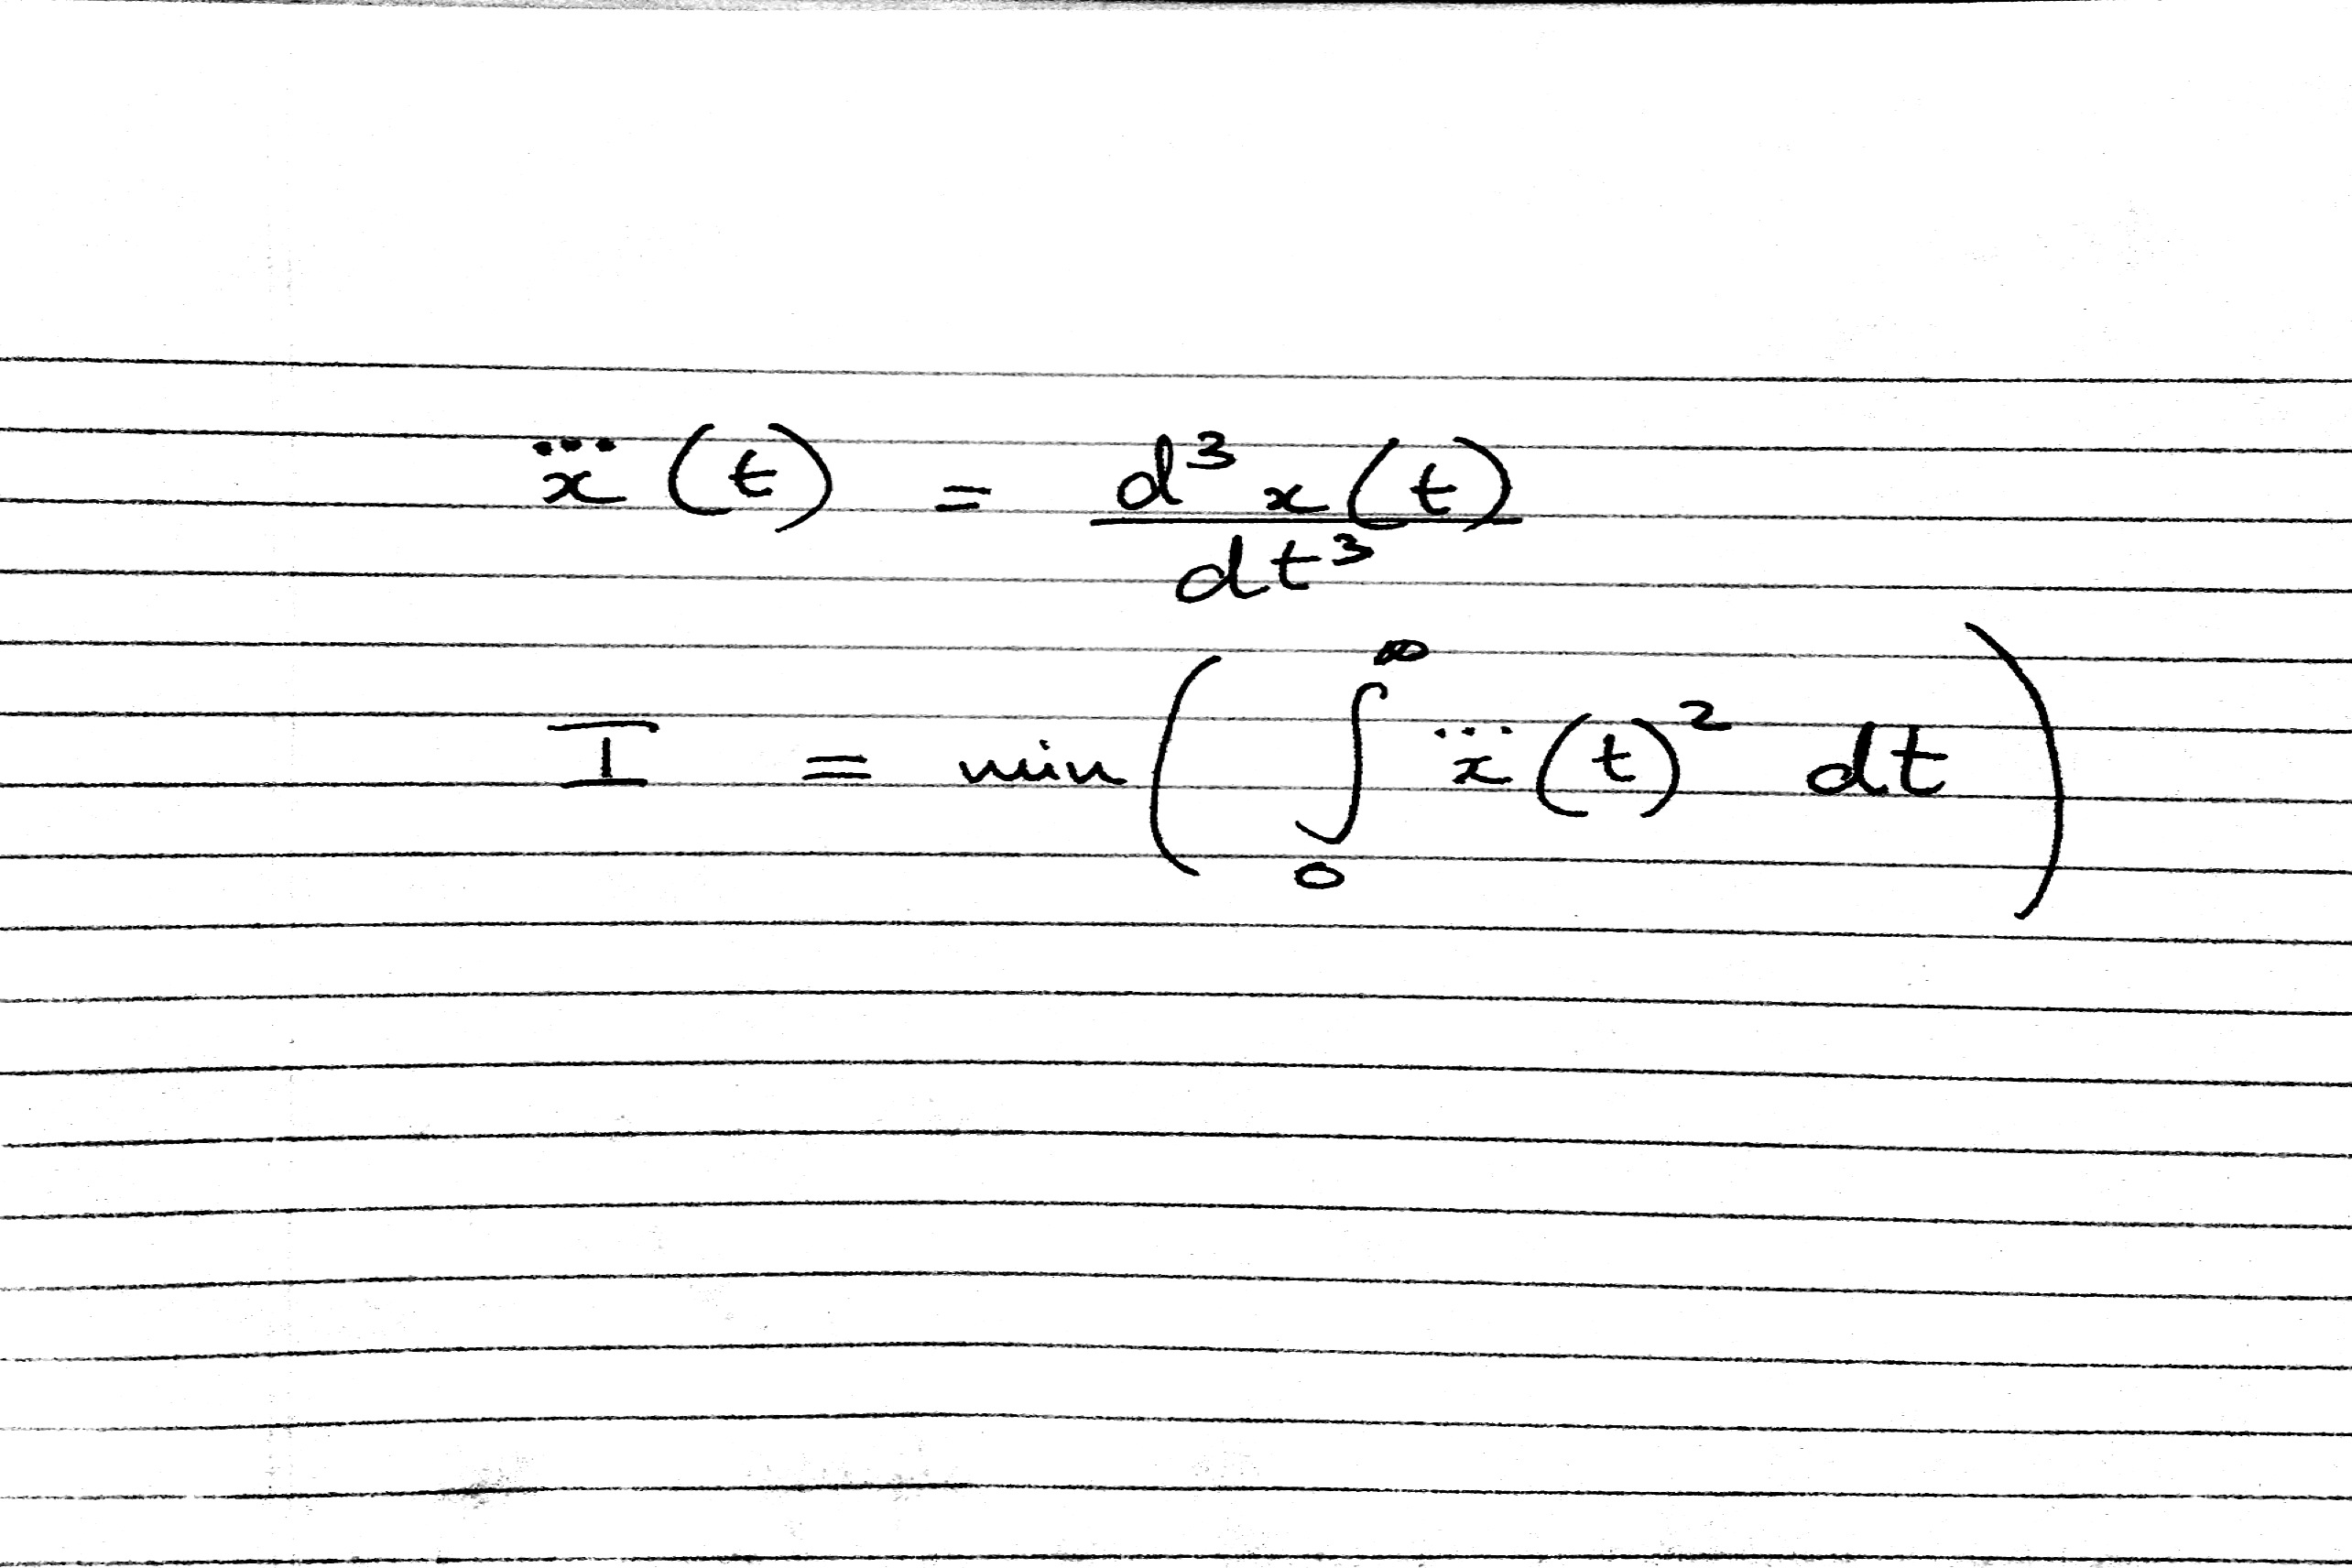 x⃛(t) = d³x(t)/dt³
I = min(∫₀^∞ x⃛(t)² dt)